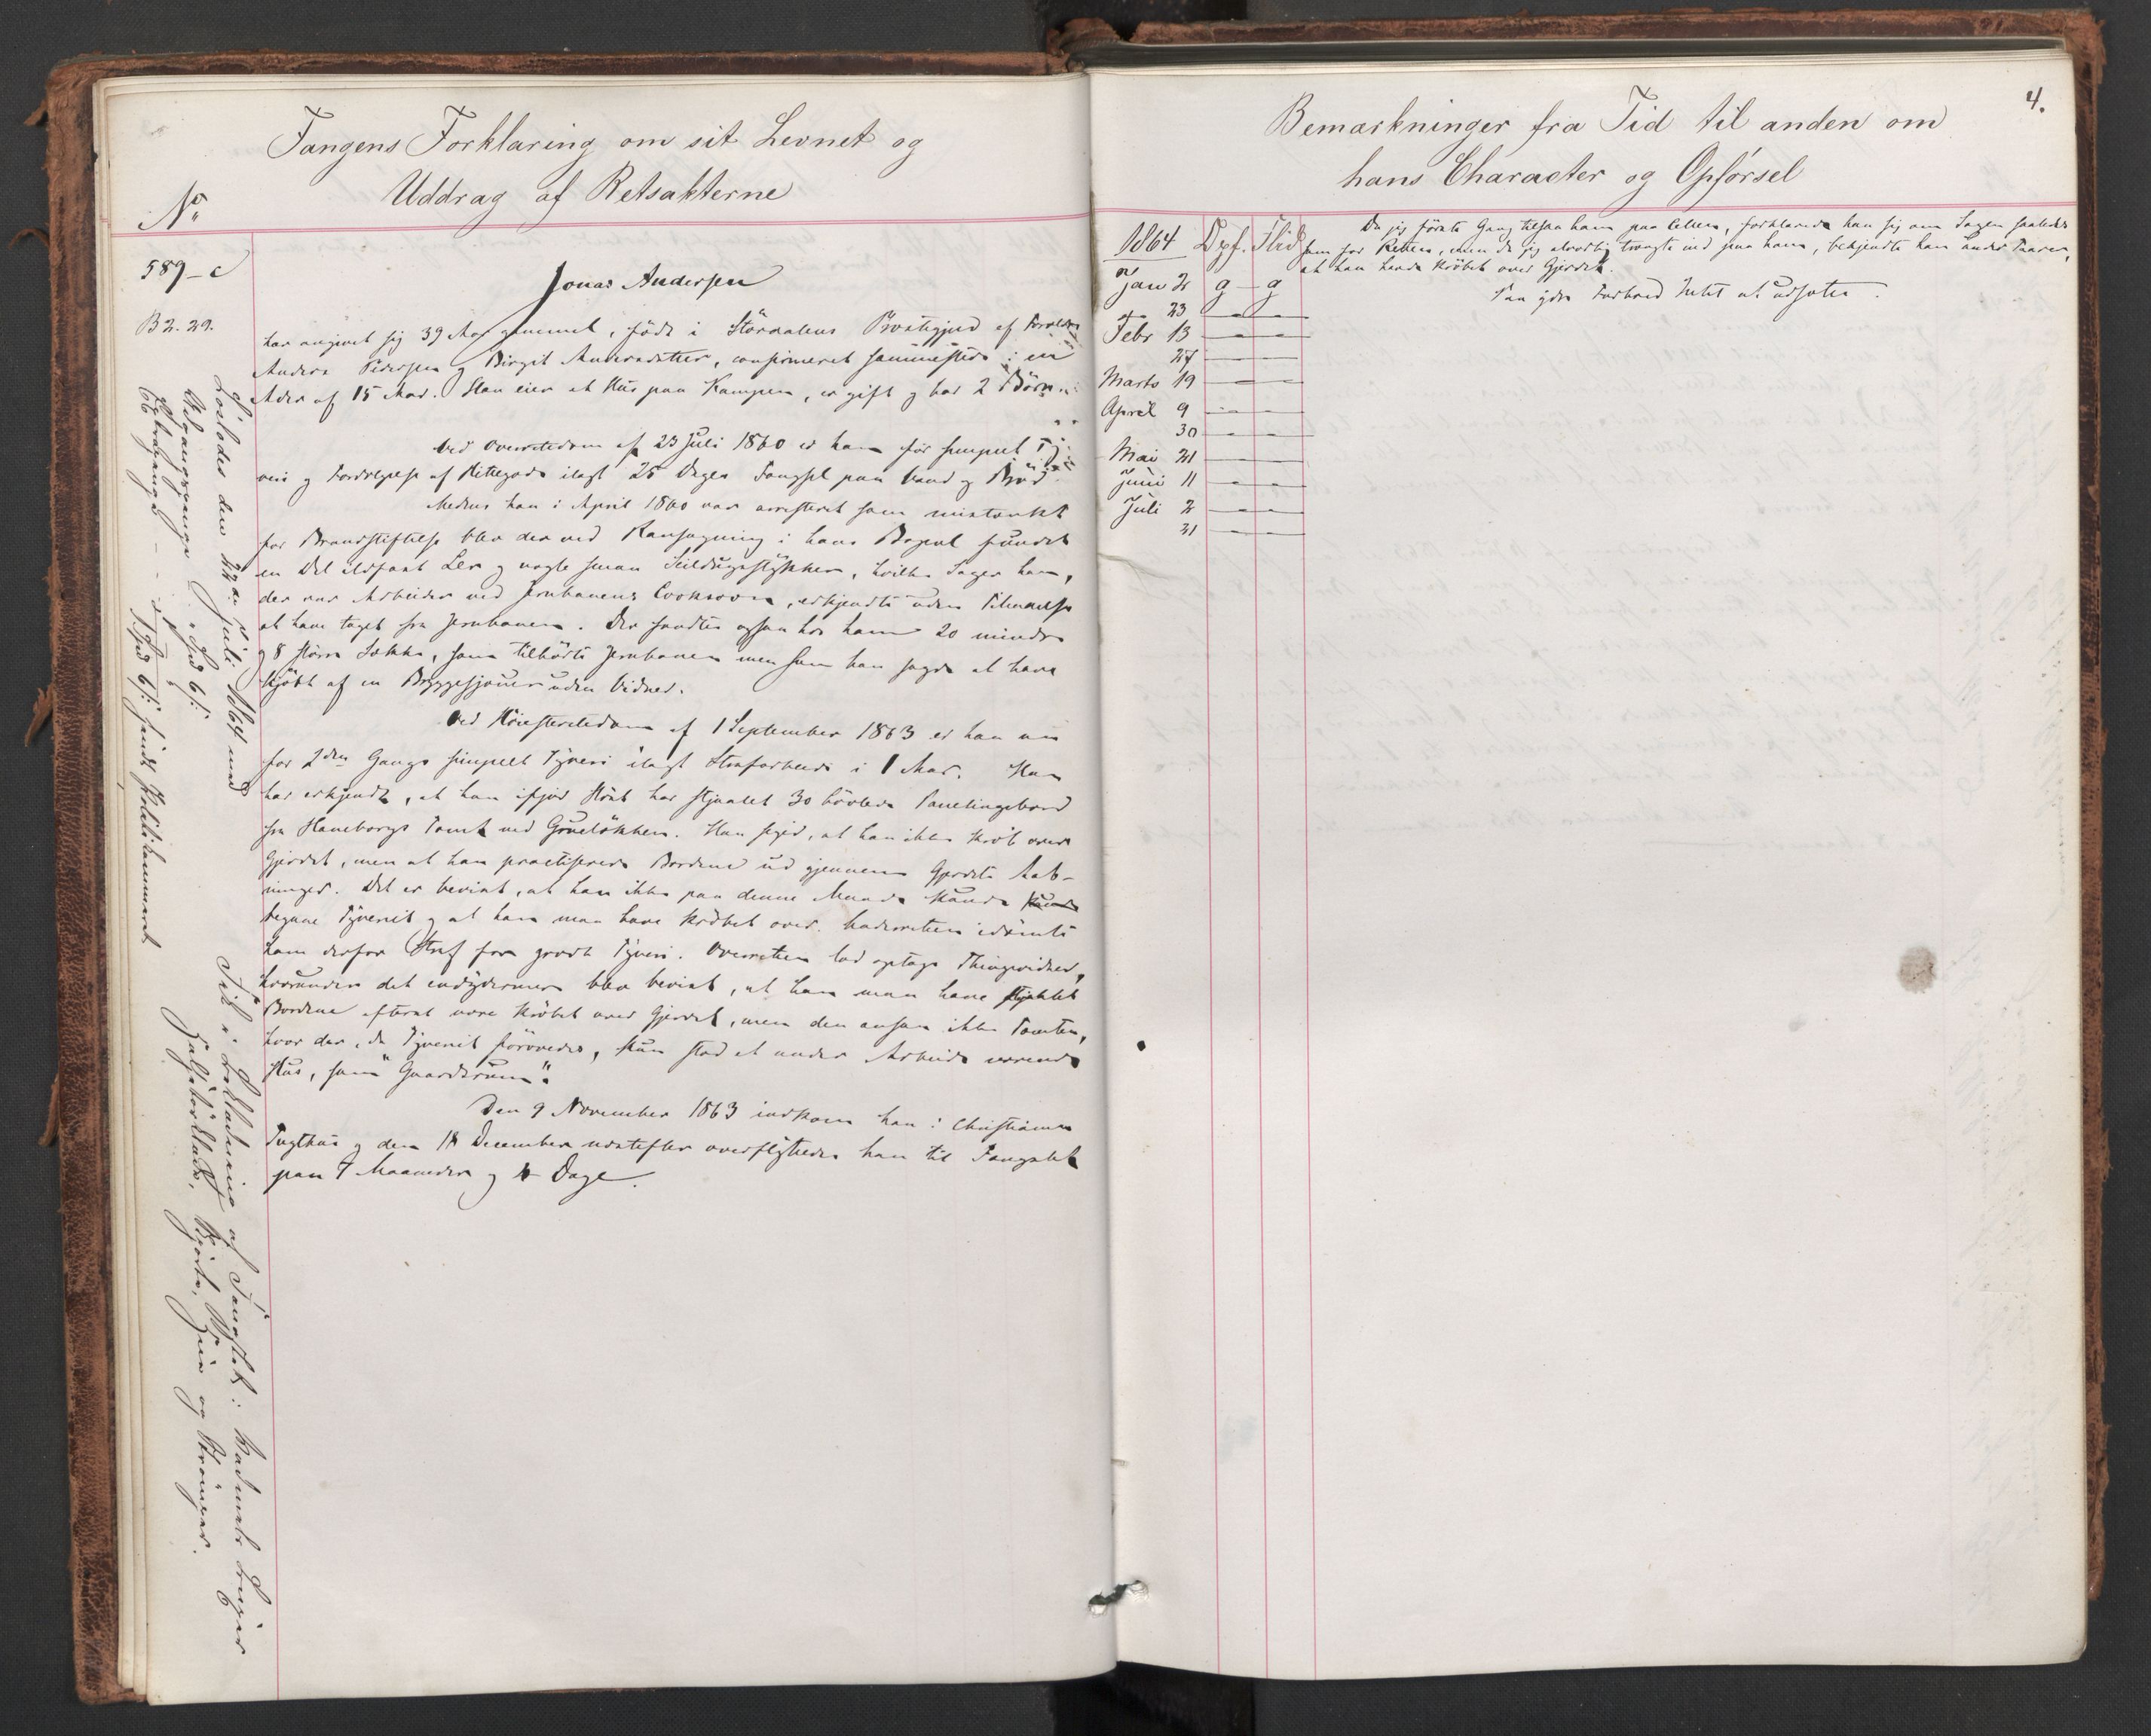 Fangens Forklaring om sit Levnet og
Uddrag af Retsakterne
No
589-c
B 2. 29.
Jonas Andersen
har angivet sig 39 Aar gammel, født i Størdalens Præstegjeld af Forældre
Anders Pedersen og Birgit Andersdatter, confirmeret sammesteds i en
Alder af 15 Aar. Han eier et Hus paa Kampen, er gift og har 2 Børn.
Ved Overretsdom af 23 Juli 1860 er han for simpelt Ty-
veri og Fordølgelse af Hittegods ilagt 25 Dages Fængsel paa Vand og Brød.
Medens han i April 1860 var arresteret som mistænkt
for Brandstiftelse blev der ved Ransagning i hans Bopæl fundet
en Del ildfast Ler og nogle smaa Seildugsstykker, hvilke Sager han,
der var Arbeider ved Jernbanens Cooksovn, erkjendte uden Tilladelse
at have taget fra Jernbanen. Der fandtes ogsaa hos ham 20 mindre
og 8 større Sække, som tilhørte Jernbanen men som han sagde at have
kjøbt af en Bryggesjouer uden Vidner.
Ved Høiesteretsdom af 1 September 1863 er han nu
for 2den Gangs simpelt Tyveri ilagt Strafarbeide i 1 Aar. Han
har erkjendt, at han ifjor Høst har stjaalet 30 høvlede Panelingsbord
fra Haneborgs Tomt ved Grueløkken. Han siger, at han ikke krøb over
Gjerdet, men at han practiserede Bordene ud gjennem Gjerdets Aab-
ninger. Det er bevist, at han ikke paa denne Maade kunde
begaae Tyveriet og at han maa have krøbet over. Underretten idømte
ham derfor Straf for grovt Tyveri. Overretten lod optage Thingsvidner,
hvorunder det endydermere blev bevist, at han maa have stjaalet
Bordene efterat være krøbet over Gjerdet, men den ansaa ikke Tomten,
hvor der, da Tyveriet forøvedes, kun stod et under Arbeide værende
Hus, som "Gaardsrum".
Den 9 November 1863 indkom han i Christiania
Tugthus og den 18 December næstefter overflyttedes han til Fængslet
paa 7 Maaneder og 4 Dage.
Løslodes den 22de Juli 1864 med
Adgangspenge
Extrapenge
sendt Politikammeret
Fik i Beklædning af Fængslet: Vadmels Trøier
Halstørklæde, Skjorte, Huer og Strømper.
4.
Bemærkninger fra Tid til anden om
hans Character og Opførsel
1864 Opf. Flid
Jan 2 g - g
23 — —
Febr 13 — —
27 — —
Marts 19 — —
April 9 — —
30 — —
Mai 21 — —
Juni 11 — —
Juli 2 — —
21 — —
Da jeg første Gang tilsaa ham paa Cellen, forklarede han sig om Sagen saaledes
som for Retten, men da jeg alvorlig trængte ind paa ham, bekjendte han under Taarer,
at han havde krøbet over Gjerdet.
Paa hans Forhold Intet at udsætte.